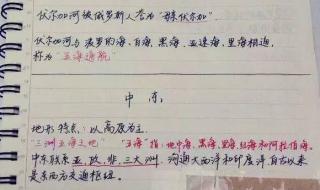 伏尔加河被俄罗斯人誉为"母亲伏尔加".
伏尔加河与波罗的海、白海、黑海、亚速海、里海相通,
称为"五海通航"
中东:
地形特点:以高原为主.
"三洲五海之地" "五海"指:地中海,黑海,里海,红海和阿拉伯海.
中东联系亚、欧、非三大洲.沟通大西洋和印度洋,自古以来
是东西方交通枢纽.